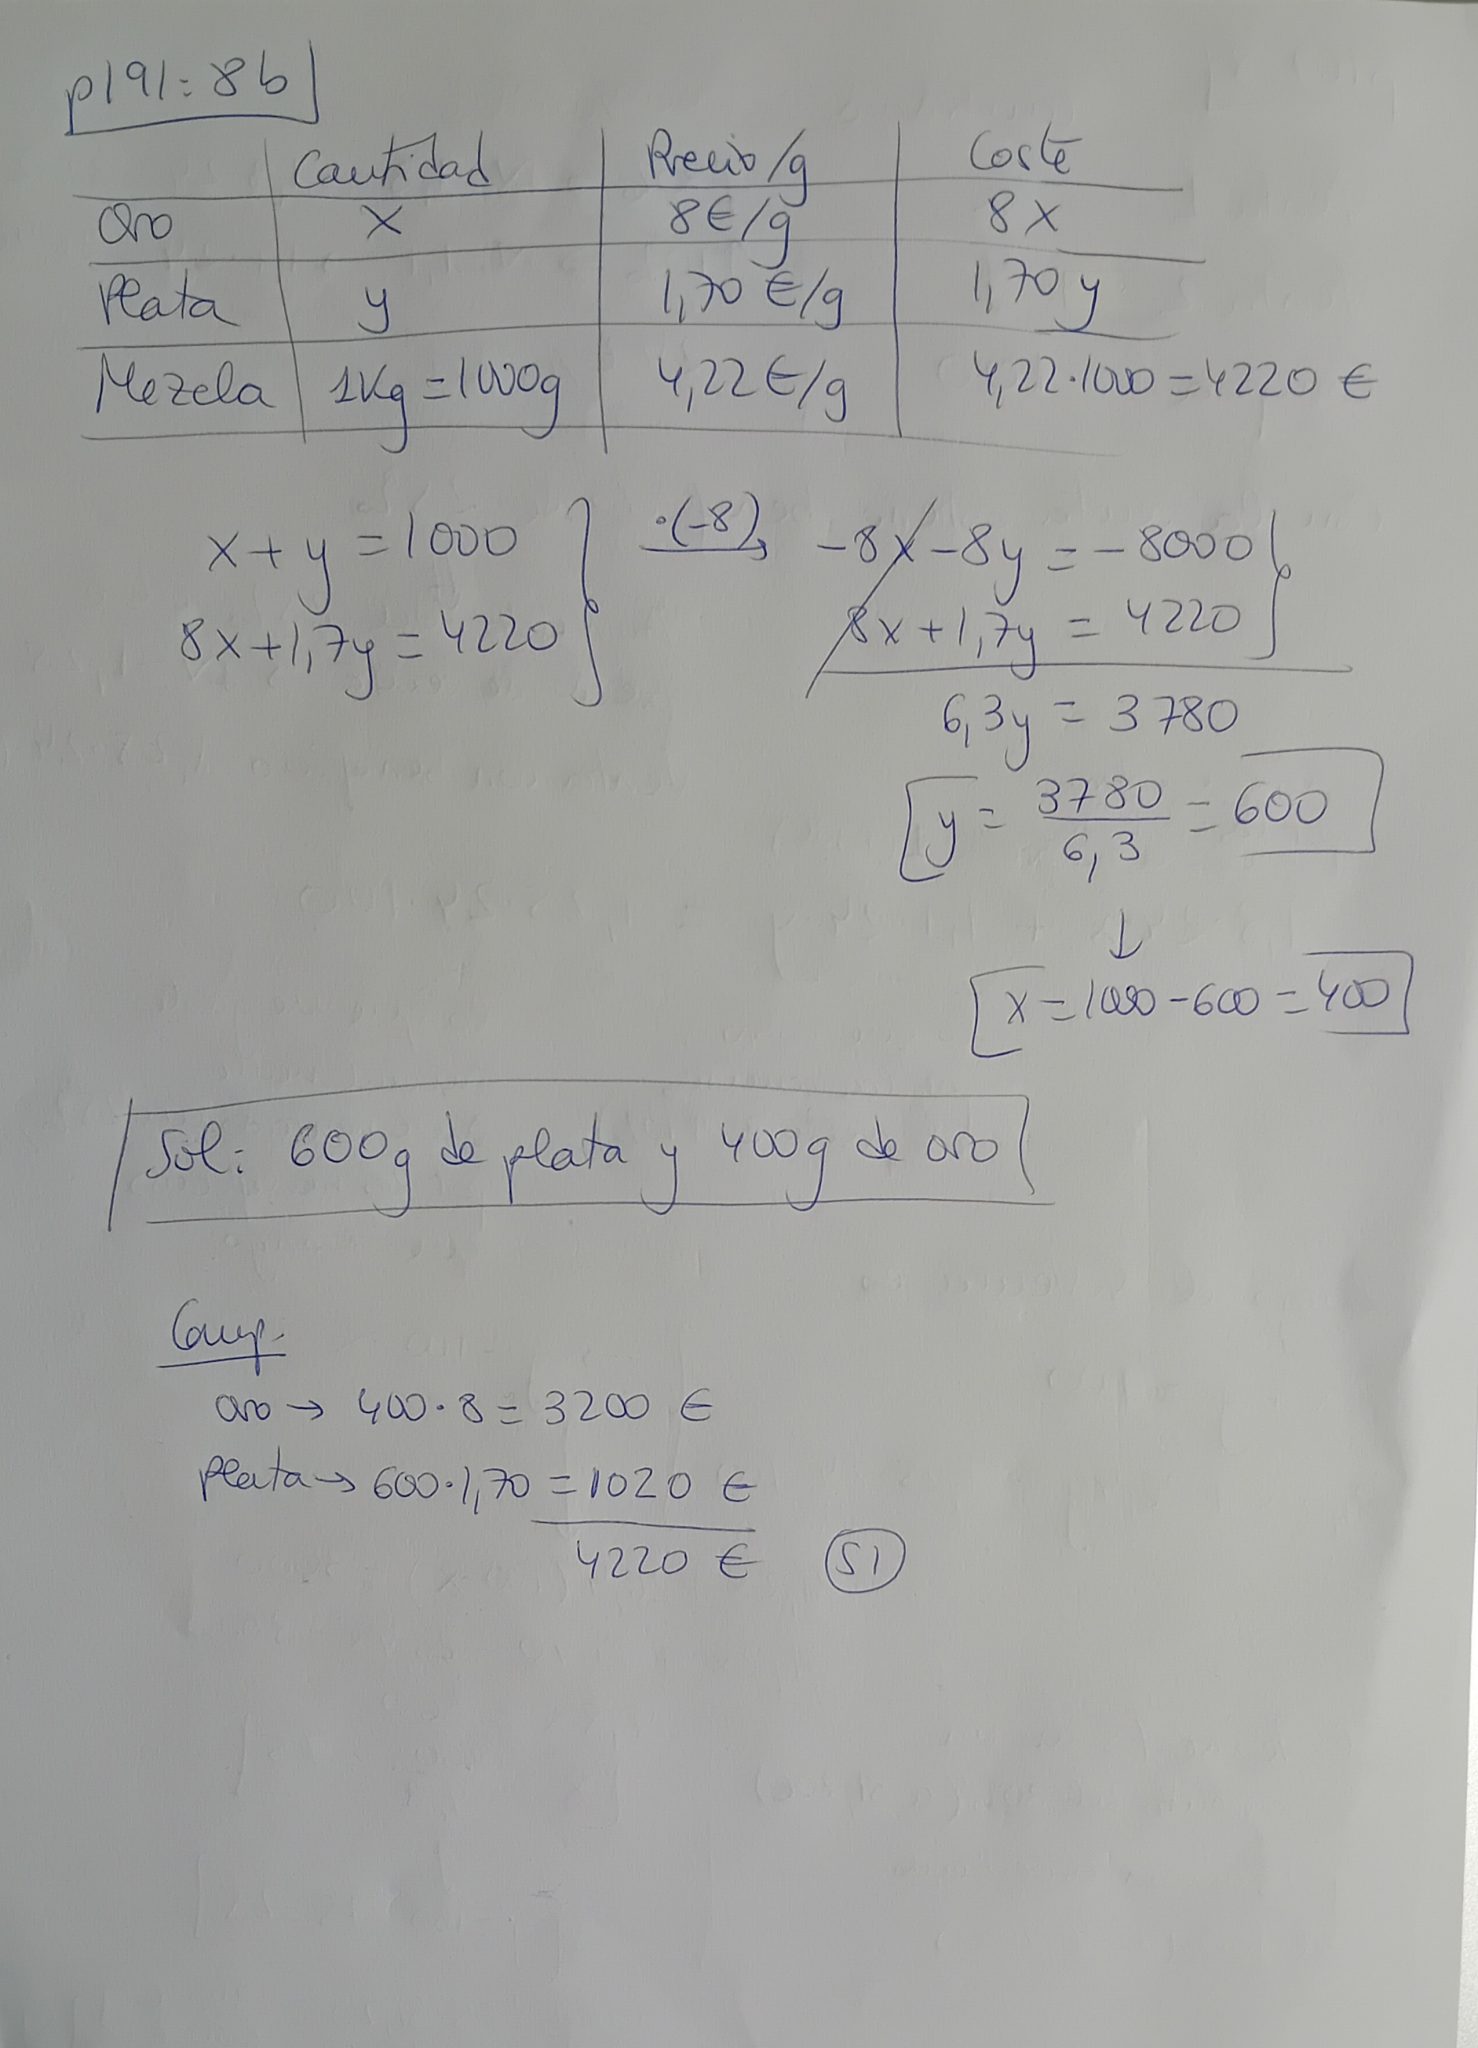 p191: 8b
Cantidad Precio/g Coste
Oro x 8€/g 8x
Plata y 1,70 €/g 1,70 y
Mezcla 1Kg=1000g 4,22€/g 4,22·1000=4220 €
x+y=1000 ·(-8) -8x-8y=-8000
8x+1,7y=4220 8x+1,7y=4220
6,3y=3780
y=3780/6,3=600
↓
x=1000-600=400
Sol: 600g de plata y 400g de oro
Comp.
oro → 400·8=3200 €
Plata → 600·1,70=1020 €
4220 € SI